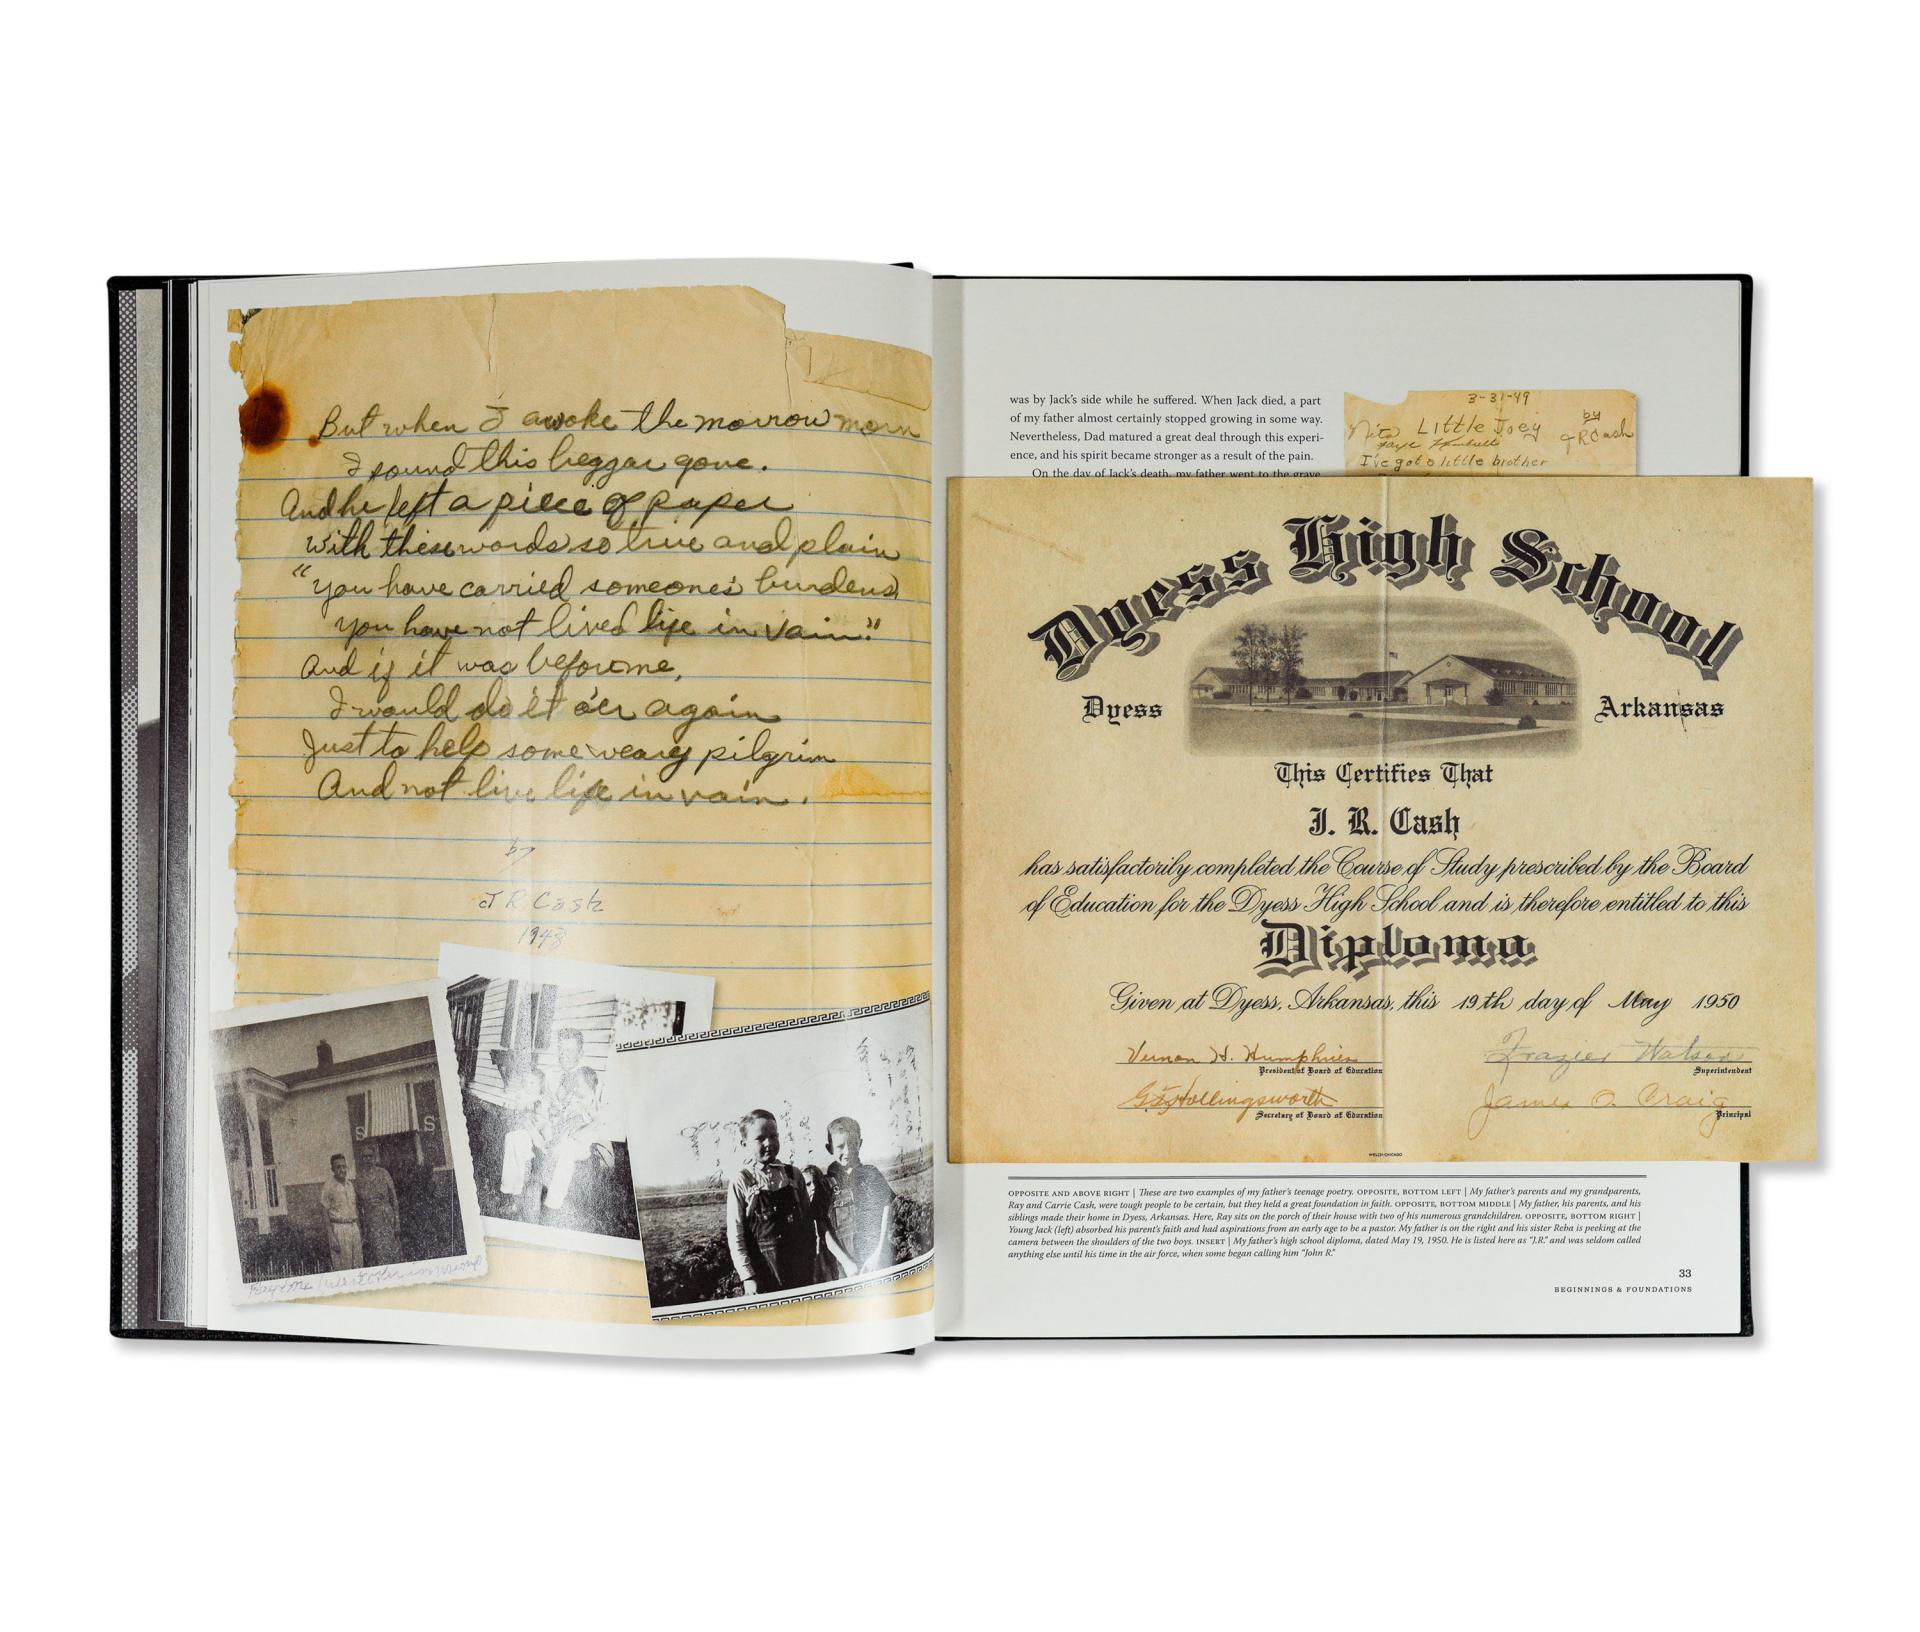 But when I awoke the morrow morn
I found this beggar gone.
And he left a piece of paper
with these words so true and plain
"you have carried someone's burdens
you have not lived life in vain."
And if it was before me,
I would do it o'er again
Just to help some weary pilgrim
And not live life in vain.
by
J R Cash
1948
S S
was by Jack's side while he suffered. When Jack died, a part
of my father almost certainly stopped growing in some way.
Nevertheless, Dad matured a great deal through this experi-
ence, and his spirit became stronger as a result of the pain.
On the day of Jack's death, my father went to the grave
3-31-49
Little Joey
by
JR Cash
I've got a little brother
Dyess High School
Dyess Arkansas
This Certifies That
J. R. Cash
has satisfactorily completed the Course of Study prescribed by the Board
of Education for the Dyess High School and is therefore entitled to this
Diploma
Given at Dyess, Arkansas, this 19th day of May 1950
Vernon H. Humphries
President of Board of Education
Frazier Watson
Superintendent
Hollingsworth
Secretary of Board of Education
James O. Craig
Principal
WELCH-CHICAGO
OPPOSITE AND ABOVE RIGHT | These are two examples of my father's teenage poetry. OPPOSITE, BOTTOM LEFT | My father's parents and my grandparents,
Ray and Carrie Cash, were tough people to be certain, but they held a great foundation in faith. OPPOSITE, BOTTOM MIDDLE | My father, his parents, and his
siblings made their home in Dyess, Arkansas. Here, Ray sits on the porch of their house with two of his numerous grandchildren. OPPOSITE, BOTTOM RIGHT |
Young Jack (left) absorbed his parent's faith and had aspirations from an early age to be a pastor. My father is on the right and his sister Reba is peeking at the
camera between the shoulders of the two boys. INSERT | My father's high school diploma, dated May 19, 1950. He is listed here as "J.R." and was seldom called
anything else until his time in the air force, when some began calling him "John R."
33
BEGINNINGS & FOUNDATIONS